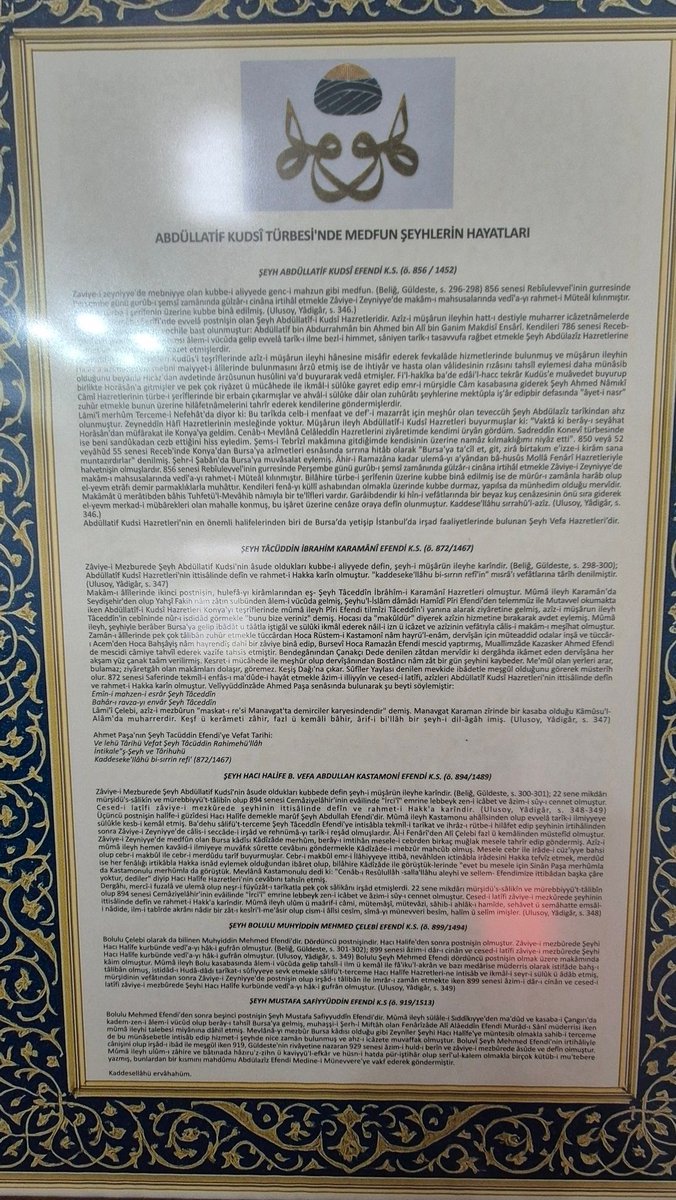 ABDÜLLATİF KUDSÎ TÜRBESİ'NDE MEDFUN ŞEYHLERİN HAYATLARI
ŞEYH ABDÜLLATİF KUDSÎ EFENDİ K.S. (ö. 856 / 1452)
Zaviye-i zeyniyye'de mebniyye olan kubbe-i aliyyede genc-i mahzun gibi medfun. (Beliğ, Güldeste, s. 296-298) 856 senesi Rebîulevvel'inin gurresinde
Perşembe günü gurûb-ı şemsî zamanında gülzâr-ı cinâna irtihâl etmekle Zâviye-i Zeyniyye'de makâm-ı mahsusalarında vedî'a-yı rahmet-i Müteâl kılınmıştır.
türbe-i şerîfenin üzerine kubbe binâ edilmiş. (Ulusoy, Yâdigâr, s. 346.)
evvelâ postnişin olan Şeyh Abdüllatîf-i Kudsî Hazretleridir. Azîz-i müşârun ileyhin hatt-ı destiyle muharrer icâzetnâmelerde
vechile bast olunmuştur: Abdüllatif bin Abdurrahmân bin Ahmed bin Alî bin Ganim Makdisî Ensârî. Kendileri 786 senesi Receb-
âlem-i vücûda gelip evvelâ tarîk-ı ilme bezl-i himmet, sâniyen tarîk-ı tasavvufa rağbet etmekle Şeyh Abdülazîz Hazretlerine
etmişlerdir.
Kudüs'i teşrîflerinde azîz-i müşârun ileyhi hânesine misâfir ederek fevkalâde hizmetlerinde bulunmuş ve müşârun ileyhin
maiyyet-i âlilerinde bulunmasını ârzû etmiş ise de ihtiyâr ve hasta olan vâlidesinin rızâsını tahsîl eylemesi daha münâsib
olduğunu beyânla Hicâz'dan avdetinde ârzûsunun husûlini va'd buyurarak vedâ etmişler. Fi'l-hakîka ba'de edâi'l-hacc tekrâr Kudüs'e muâvedet buyurup
birlikte Horâsân'a gitmişler ve pek çok riyâzet ü mücâhede ile ikmâl-i sülûke gayret edip emr-i mürşidle Câm kasabasına giderek Şeyh Ahmed Nâmıkî
Câmî Hazretlerinin türbe-i şerîflerinde bir erbain çıkarmışlar ve ahvâl-i sülûke dâir olan zuhûrâtı şeyhlerine mektupla iş'âr edipbir defasında "âyet-i nasr"
zuhûr etmekle bunun üzerine hilâfetnâmelerini tahrîr ederek kendilerine göndermişlerdir.
Lâmi'î merhûm Terceme-i Nefehât'da diyor ki: Bu tarîkda celb-i menfaat ve def'-i mazarrât için meşhûr olan teveccüh Şeyh Abdülazîz tarîkinden ahz
olunmuştur. Zeyneddîn Hâfî Hazretlerinin mesleğinde yoktur. Müşârun ileyh Abdüllatîf-i Kudsî Hazretleri buyurmuşlar ki: "Vaktâ ki berây-ı seyâhat
Horâsân'dan müfârakat ile Konya'ya geldim. Cenâb-ı Mevlânâ Celâleddîn Hazretlerini ziyâretimde kendimi üryân gördüm. Sadreddîn Konevî türbesinde
ise beni sandûkadan cezb ettiğini hiss eyledim. Şems-i Tebrîzî makâmına gitdiğimde kendisinin üzerine namâz kılmaklığımı niyâz etti". 850 veyâ 52
veyâhûd 55 senesi Receb'inde Konya'dan Bursa'ya azîmetleri esnâsında sırrına hitâb olarak "Bursa'ya ta'cîl et, git, zirâ birtakım e'izze-i kirâm sana
muntazırdırlar" denilmiş. Şehr-i Şabân'da Bursa'ya muvâsalat eylemiş. Âhir-i Ramazâna kadar ulemâ-yı a'yândan bâ-husûs Mollâ Fenârî Hazretleriyle
halvetnişîn olmuşlardır. 856 senesi Rebîulevvel'inin gurresinde Perşembe günü gurûb-ı şemsî zamânında gülzâr-ı cinâna irtihâl etmekle Zâviye-i Zeyniyye'de
makâm-ı mahsusalarında vedî'a-yı rahmet-i Müteâl kılınmıştır. Bilâhire türbe-i şerîfenin üzerine kubbe binâ edilmiş ise de mürûr-ı zamânla harâb olup
el-yevm etrâfı demir parmaklıklarla muhâttır. Kendileri fenâ-yı küllî ashabından olmakla üzerinde kubbe durmaz, yapılsa da münhedim olduğu mervîdir.
Makâmât ü merâtibden bâhis Tuhfetü'l-Mevâhib nâmıyla bir te'lîfleri vardır. Garâibdendir ki hîn-i vefâtlarında bir beyaz kuş cenâzesinin önü sıra giderek
el-yevm merkad-i mübârekleri olan mahalle konmuş, bu işâret üzerine cenâze oraya defin olunmuştur. Kaddese'llâhu sırrahu'l-azîz. (Ulusoy, Yâdigâr, s.
346.)
Abdüllatif Kudsi Hazretleri'nin en önemli halifelerinden biri de Bursa'da yetişip İstanbul'da irşad faaliyetlerinde bulunan Şeyh Vefa Hazretleri'dir.
ŞEYH TÂCÜDDİN İBRAHİM KARAMÂNÎ EFENDİ K.S. (ö. 872/1467)
Zâviye-i Mezburede Şeyh Abdüllatif Kudsi'nin âsude oldukları kubbe-i aliyyede defin, şeyh-i müşârun ileyhe karîndir. (Beliğ, Güldeste, s. 298-300);
Abdüllatif Kudsî Hazretleri'nin ittisâlinde defin ve rahmet-i Hakka karin olmuştur. "kaddeseke'llâhu bi-sırrın refî'in" mısrâ'ı vefâtlarına târih denilmiştir.
(Ulusoy, Yâdigâr, s. 347)
Makâm-ı âlîlerinde ikinci postnişin, hulefâ-yı kirâmlarından eş- Şeyh Tâceddîn İbrâhîm-i Karamânî Hazretleri olmuştur. Mûmâ ileyh Karamân'da
Seydişehir'den olup Yahşî Fakîh nâm zâtın sulbünden âlem-i vücûda gelmiş, Şeyhu'l-İslâm dâmâdı Hamîdî Pîrî Efendi'den telemmüz ile Mutavvel okumakta
iken Abdüllatîf-i Kudsî Hazretleri Konya'yı teşrîflerinde mûmâ ileyh Pîrî Efendi tilmîzi Tâceddîn'i yanına alarak ziyâretine gelmiş, azîz-i müşârun ileyh
Tâceddîn'in cebîninde nûr-ı isdidâd görmekle "bunu bize veriniz" demiş. Hocası da "makûldür" diyerek azîzin hizmetine bırakarak avdet eylemiş. Mûmâ
ileyh, şeyhiyle berâber Bursa'ya gelip ibâdât ü tâatla iştigâl ve sülûki ikmâl ederek nâil-i izn ü icâzet ve azîzinin vefâtıyla câlis-i makâm-ı meşîhat olmuştur.
Zamân-ı âlîlerinde pek çok tâlibân zuhûr etmekle tüccârdan Hoca Rüstem-i Kastamonî nâm hayru'l-enâm, dervîşân için müteaddid odalar inşâ ve tüccâr-
ı Acem'den Hoca Bahşâyîş nâm hayrendîş dahi bir zâviye binâ edip, Bursevî Hoca Ramazân Efendi mescid yaptırmış, Muallimzâde Kazasker Ahmed Efendi
de mescidi câmiye tahvîl ederek vazîfe tahsîs etmiştir. Bendegânından Çanakçı Dede denilen zâtdan mervîdir ki dergâhda ikâmet eden dervîşâna her
akşam yüz çanak taâm verilirmiş. Kesret-i mücâhede ile meşhûr olup dervîşânından Bostâncı nâm zât bir gün şeyhini kaybeder. Me'mûl olan yerleri arar,
bulamaz; ziyâretgâh olan makâmları dolaşır, göremez. Keşiş Dağı'na çıkar. Sûfîler Yaylası denilen mevkide ibâdetle meşgûl olduğunu görerek müsterîh
olur. 872 senesi Saferinde tekmîl-i enfâs-ı ma'dûde-i hayât etmekle âzim-i illiyyîn ve cesed-i latîfi, azîzleri Abdüllatîf Kudsî Hazretleri'nin ittisâlinde defin
ve rahmet-i Hakka karîn olmuştur. Veliyyüddînzâde Ahmed Paşa senâsında bulunarak şu beyti söylemiştir:
Emîn-i mahzen-i esrâr Şeyh Tâceddîn
Bahâr-ı ravza-yı envâr Şeyh Tâceddîn
Lami'î Çelebi, azîz-i mezbûrun "maskat-ı re'si Manavgat'ta demirciler karyesindendir" demiş. Manavgat Karaman zîrinde bir kasaba olduğu Kâmûsu'l-
Alâm'da muharrerdir. Keşf ü kerâmeti zâhir, fazl ü kemâli bâhir, ârif-i bi'llâh bir şeyh-i dil-âgâh imiş. (Ulusoy, Yâdigâr, s. 347)
Ahmet Paşa'nın Şeyh Tacüddin Efendi'ye Vefat Tarihi:
Ve lehü Târihü Vefat Şeyh Tâcüddin Rahimehü'llâh
İntikale"ş-Şeyh ve Târihuhü
Kaddeseke'llâhü bi-sırrın refî' (872/1467)
ŞEYH HACI HALİFE B. VEFA ABDULLAH KASTAMONİ EFENDİ K.S. (ö. 894/1489)
Zâviye-i Mezburede Şeyh Abdüllatif Kudsi'nin âsude oldukları kubbede defin şeyh-i müşârun ileyhe karindir. (Beliğ, Güldeste, s. 300-301); 22 sene mikdarı
mürşidü's-sâlikîn ve mürebbiyyü't-tâlibîn olup 894 senesi Cemâziyelâhir'inin evâilinde "İrci'î" emrine lebbeyk zen-i icâbet ve âzim-i sûy-ı cennet olmuştur.
Cesed-i latîfi zâviye-i mezkûrede şeyhinin ittisâlinde defin ve rahmet-i Hakk'a karîndir. (Ulusoy, Yâdigâr, s. 348-349)
Üçüncü postnişin halîfe-i güzîdesi Hacı Halîfe demekle maruf Şeyh Abdullah Efendi'dir. Mûmâ ileyh Kastamonu ahâlîsinden olup evvelâ tarîk-i ilmiyyeye
sülûkle kesb-i kemâl etmiş. Ba'dehu sâlifü't-terceme Şeyh Tâceddîn Efendi'ye intisâbla tekmîl-i tarîkat ve ihrâz-ı rütbe-i hilâfet edip şeyhinin irtihâlinden
sonra Zâviye-i Zeyniyye'de câlis-i seccâde-i irşâd ve rehnümâ-yı tarîk-i reşâd olmuşlardır. Âl-i Fenârî'den Ali Çelebi fazl ü kemâlinden müstefîd olmuştur.
Zâviye-i Zeyniyye'de medfûn olan Bursa kâdîsı Kâdîzâde merhûm, berây-ı imtihân mesele-i cebrden birkaç muğlak mesele tahrîr edip göndermiş. Azîz-i
mûmâ ileyh hemen kavâid-i ilmiyeye muvâfık sûrette cevâbını göndermekle Kâdîzâde-i mebzûr mahcûb olmuş. Mesele cebr ile irâde-i cüz'iyye bahsi
olup cebr-i makbûl ile cebr-i merdûdu tarîf buyurmuşlar. Cebr-i makbûl emr-i İlâhiyyeye ittibâ, nevâhîden ictinâbla irâdesini Hakka tefvîz etmek, merdûd
ise her fenâlığı irtikâbla Hakka isnâd eylemek olduğundan ibâret olup, bilâhire Kâdîzâde ile görüştük-lerinde "evet bu mesele için Sinân Paşa merhûmla
da Kastamonulu merhumla da görüştük. Mevlânâ Kastamonulu dedi ki: "Cenâb-ı Resûlullâh -salla'llâhu aleyhi ve sellem- Efendimize ittibâdan başka çâre
yoktur, dediler" diyip Hacı Halîfe Hazretleri'nin cevâbını tahsîn etmiş.
Dergâhı, mercî-i fuzalâ ve ulemâ olup neşr-i füyûzât-ı tarîkatla pek çok sâlikânı irşâd etmişlerdi. 22 sene mikdarı mürşidü's-sâlikîn ve mürebbiyyü't-tâlibîn
olup 894 senesi Cemâziyelâhir'inin evâilinde "İrci'î" emrine lebbeyk zen-i icâbet ve âzim-i sûy-ı cennet olmuştur. Cesed-i latîfi zâviye-i mezkûrede şeyhinin
ittisâlinde defin ve rahmet-i Hakk'a karîndir. Mûmâ ileyh ulûm ü maârif-i câmi, mütemmiji, mütevâzi, sâhib-i ahlâk-ı hamîde, sehâvet ü semâhatte emsâl-
i nâdide, ilm-i tabîrde akrânı nâdir bir zât-ı kesîrî'l-me'âsir olup cism-i âlîsi cesîm, sîmâ-yı münevveri besîm, halîm ü selîm imişler. (Ulusoy, Yâdigâr, s. 348)
ŞEYH BOLULU MUHYİDDİN MEHMED ÇELEBİ EFENDİ K.S. (ö. 899/1494)
Bolulu Çelebi olarak da bilinen Muhyiddin Mehmed Efendi'dir. Dördüncü postnişindir. Hacı Halife'den sonra postnişin olmuştur. Zâviye-i mezbûrede Şeyhi
Hacı Halife kurbünde vedî'a-yı hâk-i gufrân olmuştur. (Beliğ, Güldeste, s. 301-302); 899 senesi âzimi-i dâr-ı cinân ve cesed-i latîfi zâviye-i mezbûrede Şeyhi
Hacı Halîfe kurbünde vedî'a-yı hâk-i gufrân olmuştur. (Ulusoy, Yâdigâr, s. 349) Bolulu Şeyh Mehmed Efendi dördüncü postnişin olmak üzere makâmında
kâim olmuştur. Mûmâ ileyh Bolu kasabasında âlem-i vücûda gelip tahsîl-i ilm ü kemâl ile fâ'iku'l-akrân ve bazı medârise müderris olarak istifâde bahş-ı
tâlibân olmuş, istidâd-ı Hudâ-dâdı tarîkat-ı sûfiyyeye sevk etmekle sâlifü't-terceme Hacı Halîfe Hazretleri-ne intisâb ve ikmâl-i seyr-i sülûk ü âdâb etmiş,
mürşidinin vefâtından sonra Zâviye-i Zeyniyye'de postnişin olup irşâd-ı tâlibân ile imrâr-ı zamân etmekte iken 899 senesi âzim-i dâr-ı cinân ve cesed-i
latîfi zâviye-i mezbûrede Şeyhi Hacı Halife kurbünde vedî'a-yı hâk-i gufrân olmuştur. (Ulusoy, Yâdigâr, s. 349)
ŞEYH MUSTAFA SAFİYYÜDDİN EFENDİ K.S (ö. 919/1513)
Bolulu Mehmed Efendi'den sonra beşinci postnişin Şeyh Mustafa Safiyyuddîn Efendi'dir. Mûmâ ileyh sülâle-i Sıddîkıyye'den ma'dûd ve kasaba-i Çangırı'da
kadem-zen-i âlem-i vücûd olup berây-ı tahsîl Bursa'ya gelmiş, muhaşşi-i Şerh-i Miftâh olan Fenârîzâde Ali Alâeddîn Efendi Murâd-ı Sânî müderrisi iken
mûmâ ileyhi talebesi miyânına dâhil etmiş. Mevlânâ-yı mezbûr Bursa kâdısı olduğu gibi Zeynîler Şeyhi Hacı Halîfe'ye müntesib olmakla sâhib-i terceme
de bu münâsebetle intisâb edip hizmet-i şeyhde nice zaman bulunmuş ve ahz-ı icâzete muvaffak olmuştur. Boluvî Şeyh Mehmed Efendi'nin irtihâliyle
cânişîni olup irşâd-ı ibâd ile meşgûl iken 919, Güldeste'nin rivâyetine nazaran 929 senesi âzim-i huld-i berîn ve zâviye-i mezbûrede âsûde ve defîn olmuştur.
Mûmâ ileyh ulûm-ı zâhire ve bâtınada hâzıru'z-zihn ü kaviyyü'l-efkâr ve hüsn-i hatda pür-iştihâr olup serî'ul-kalem olmakla birçok kütüb-i mu'tebere
yazmış, bunlardan bir kısmını mahdûmu Abdülazîz Efendi Medîne-i Münevvere'ye vakf ederek göndermiştir.
Kaddesellâhü ervâhahüm.